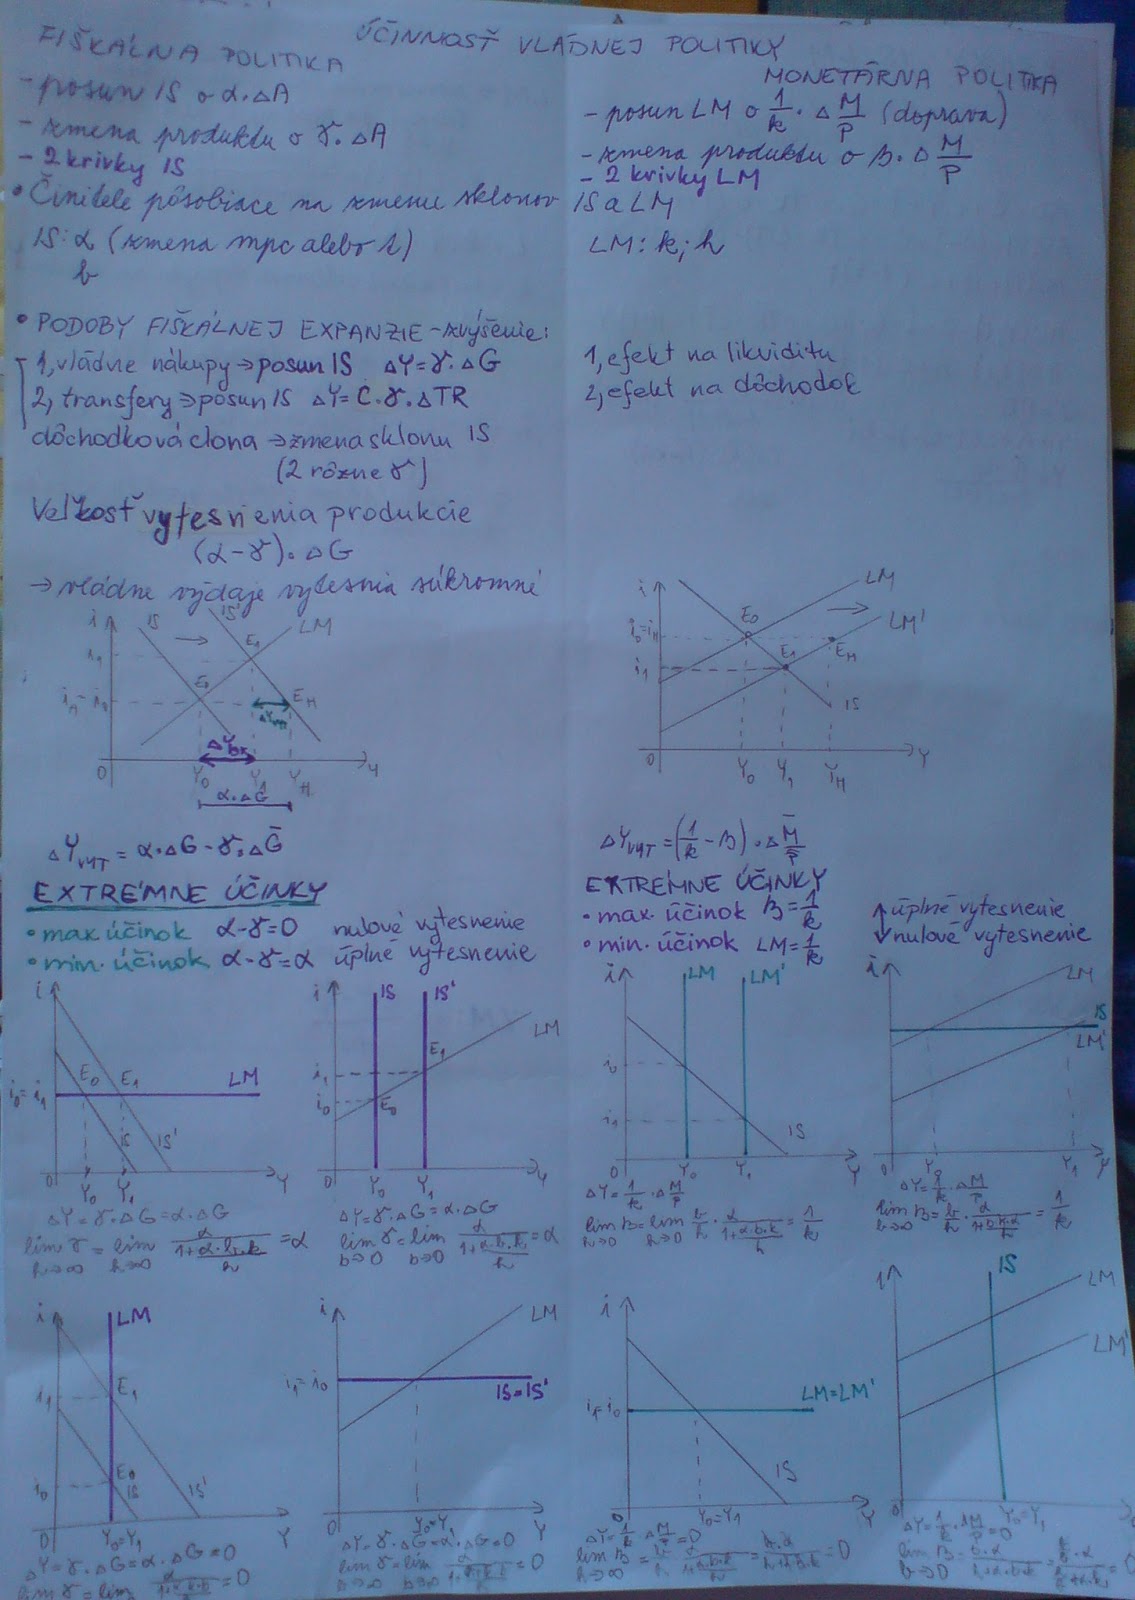 ÚČINNOSŤ VLÁDNEJ POLITIKY
FIŠKÁLNA POLITIKA
- posun IS o α.ΔA
- zmena produktu o γ.ΔA
- 2 krivky IS
MONETÁRNA POLITIKA
- posun LM o 1/k . Δ M/P (doprava)
- zmena produktu o β. Δ M/P
- 2 krivky LM
• Činitele pôsobiace na zmenu sklonov IS a LM
IS: α (zmena mpc alebo t)
b
LM: k; h
• PODOBY FIŠKÁLNEJ EXPANZIE - zvýšenie:
1, vládne nákupy → posun IS ΔY = γ.ΔG
2, transfery → posun IS ΔY = C.γ.ΔTR
dôchodková clona → zmena sklonu IS
(2 rôzne γ)
1, efekt na likviditu
2, efekt na dôchodok
Veľkosť vytesnenia produkcie
(α-γ). ΔG
→ vládne výdaje vytesnia súkromné
i IS IS' LM
i1 E1
iH = i0 E0 EH
ΔYvyt
0 Y0 Y1 YH Y
α.ΔG
i LM
LM'
i0=iH E0 EH
i1 E1
IS
0 Y0 Y1 YH Y
ΔYVYT = α.ΔG - γ.ΔḠ
ΔYVYT = (1/k - β) . Δ M̄/P̄
EXTRÉMNE ÚČINKY
• max účinok α-γ=0 nulové vytesnenie
• min. účinok α-γ=α úplné vytesnenie
EXTRÉMNE ÚČINKY
• max. účinok β=1/k
• min. účinok LM=1/k
↑ úplné vytesnenie
↓ nulové vytesnenie
i
E0 E1 LM
i0=i1
IS IS'
0 Y0 Y1 Y
ΔY=γ.ΔG=α.ΔG
lim h→∞ γ = lim h→∞ α/(1+α.b.k/h) = α
i IS IS'
LM
i1 E1
i0 E0
0 Y0 Y1 Y
ΔY=γ.ΔG=α.ΔG
lim b→0 γ = lim b→0 α/(1+α.b.k/h) = α
i LM LM'
i0
i1
IS
0 Y0 Y1 Y
ΔY=1/k . Δ M/P
lim h→0 β = lim h→0 b/h . α/(1+α.b.k/h) = 1/k
i LM
IS
LM'
0 Y0 Y1 Y
ΔY=1/k . Δ M/P
lim b→∞ β = b/h . α/(1+b.k.α/h) = 1/k
i LM
i1 E1
i0 E0
IS IS'
0 Y0=Y1 Y
ΔY=γ.ΔG=α.ΔG=0
lim γ = lim α/(1+α.b.k/h) = 0
i LM
i1=i0
IS=IS'
0 Y0=Y1 Y
ΔY=γ.ΔG=α.ΔG=0
lim b→∞ γ = lim b→∞ α/(1+α.b.k/h) = 0
i
i1=i0 LM=LM'
IS
0 Y0=Y1 Y
ΔY=1/k . Δ M/P=0
lim h→∞ β = =0
i IS
LM
LM'
0 Y0=Y1 Y
ΔY=1/k . ΔM/P=0
lim b→0 β =